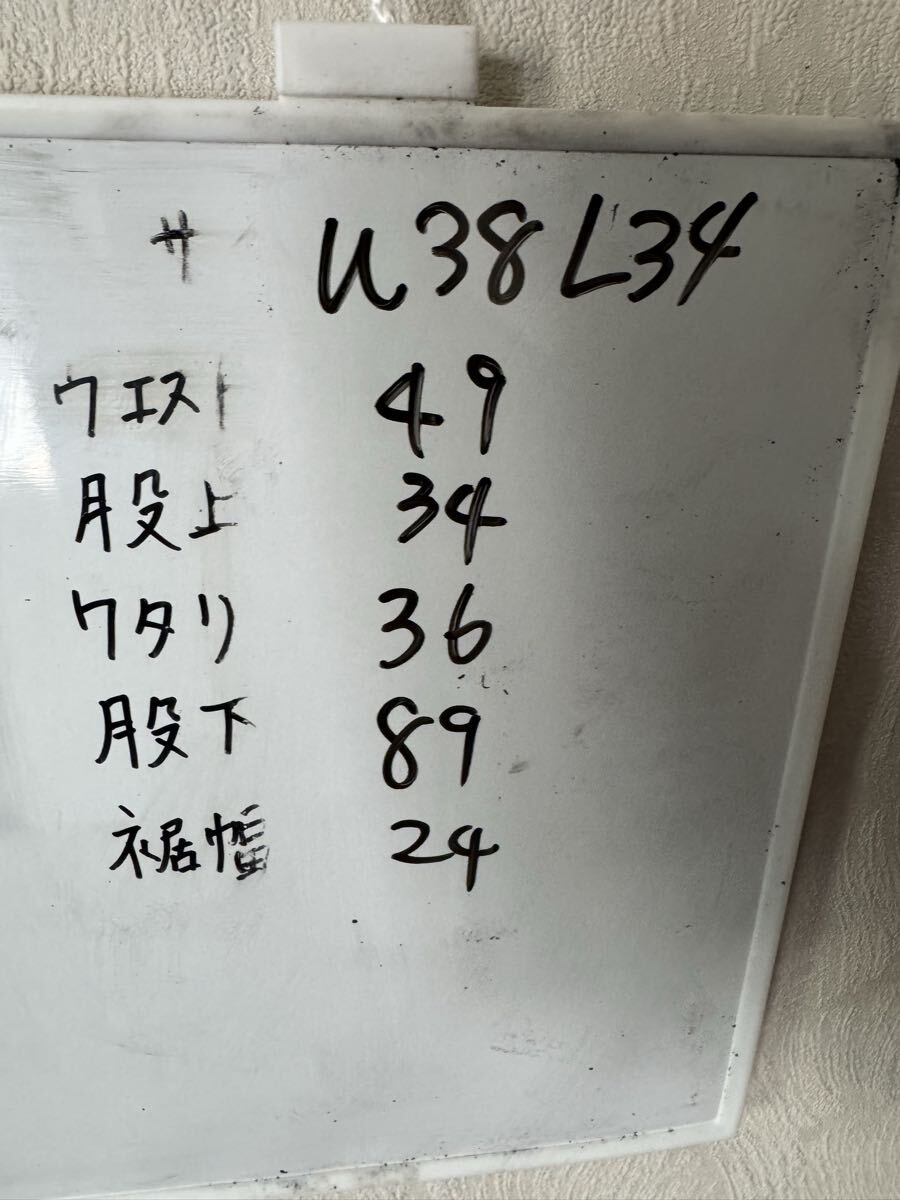 サ W38 L34
ウエスト 49
股上 34
ワタリ 36
股下 89
裾幅 24